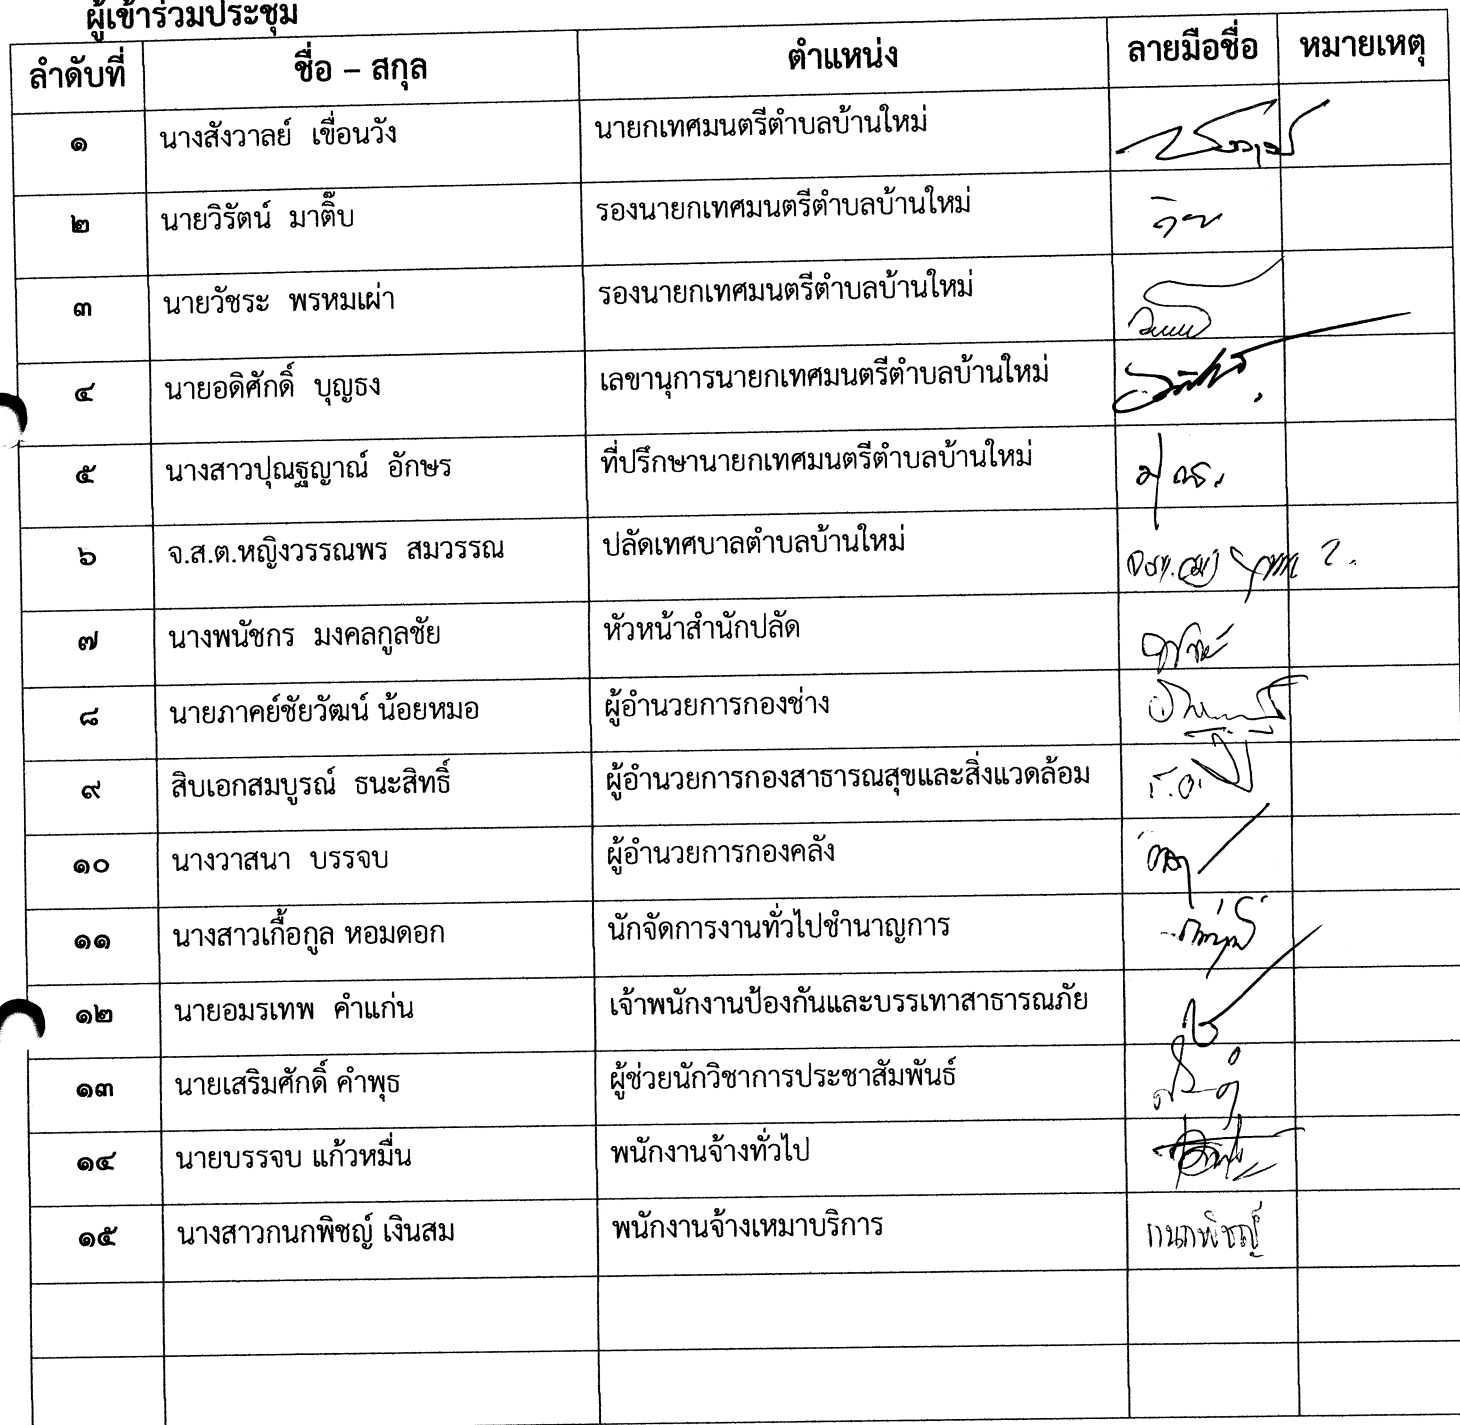 ผู้เข้าร่วมประชุม
ลำดับที่ ชื่อ – สกุล ตำแหน่ง ลายมือชื่อ หมายเหตุ
๑ นางสังวาลย์ เขื่อนวัง นายกเทศมนตรีตำบลบ้านใหม่
๒ นายวิรัตน์ มาติ๊บ รองนายกเทศมนตรีตำบลบ้านใหม่
๓ นายวัชระ พรหมเผ่า รองนายกเทศมนตรีตำบลบ้านใหม่
๔ นายอดิศักดิ์ บุญธง เลขานุการนายกเทศมนตรีตำบลบ้านใหม่
๕ นางสาวปุณฐญาณ์ อักษร ที่ปรึกษานายกเทศมนตรีตำบลบ้านใหม่
๖ จ.ส.ต.หญิงวรรณพร สมวรรณ ปลัดเทศบาลตำบลบ้านใหม่
๗ นางพนัชกร มงคลกูลชัย หัวหน้าสำนักปลัด
๘ นายภาคย์ชัยวัฒน์ น้อยหมอ ผู้อำนวยการกองช่าง
๙ สิบเอกสมบูรณ์ ธนะสิทธิ์ ผู้อำนวยการกองสาธารณสุขและสิ่งแวดล้อม
๑๐ นางวาสนา บรรจบ ผู้อำนวยการกองคลัง
๑๑ นางสาวเกื้อกูล หอมดอก นักจัดการงานทั่วไปชำนาญการ
๑๒ นายอมรเทพ คำแก่น เจ้าพนักงานป้องกันและบรรเทาสาธารณภัย
๑๓ นายเสริมศักดิ์ คำพุธ ผู้ช่วยนักวิชาการประชาสัมพันธ์
๑๔ นายบรรจบ แก้วหมื่น พนักงานจ้างทั่วไป
๑๕ นางสาวกนกพิชญ์ เงินสม พนักงานจ้างเหมาบริการ กนกพิชญ์